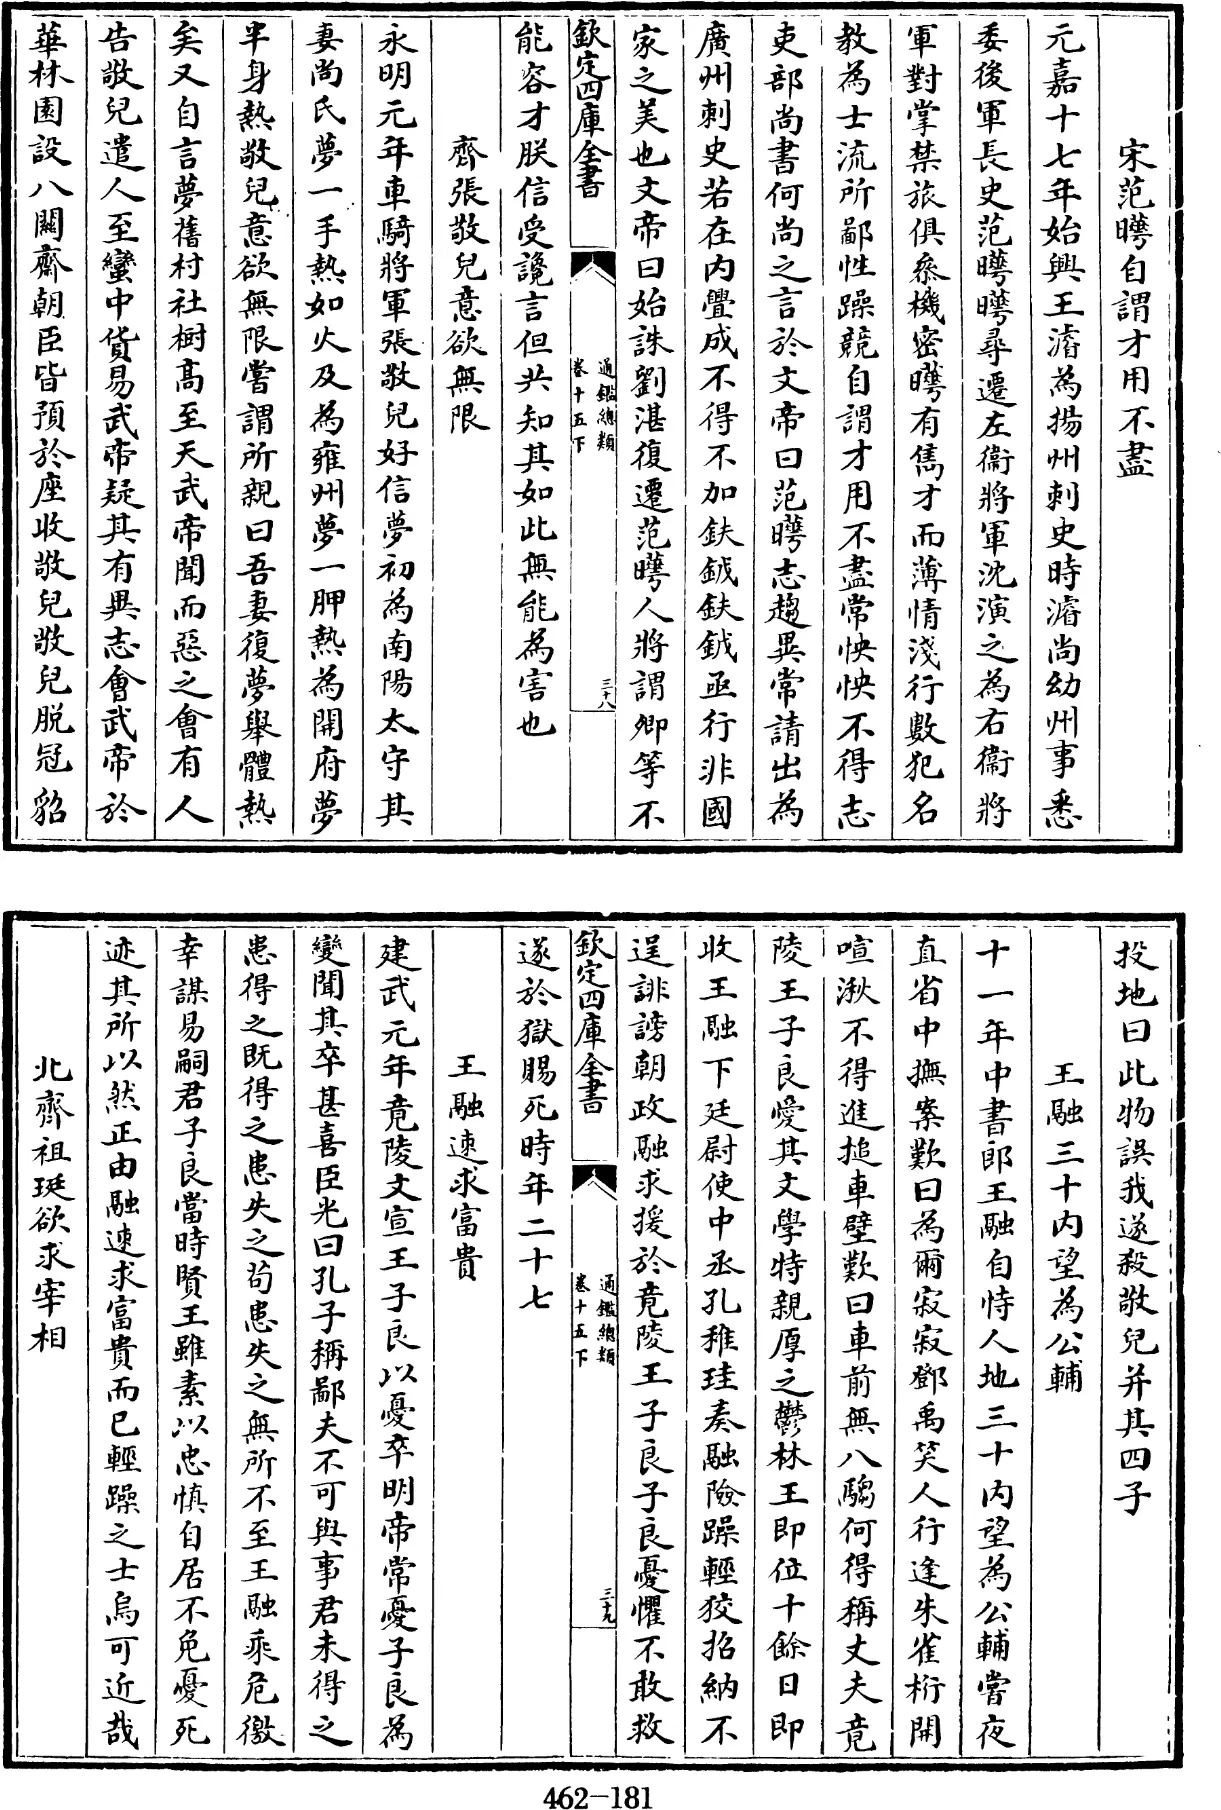 宋范曄自謂才用不盡
元嘉十七年始興王濬為揚州刺史時濬尚幼州事悉
委後軍長史范曄曄尋遷左衞將軍沈演之為右衞將
軍對掌禁旅俱叅機密曄有雋才而薄情淺行數犯名
教為士流所鄙性躁競自謂才用不盡常怏怏不得志
吏部尚書何尚之言於文帝曰范曄志趨異常請出為
廣州刺史若在内舋成不得不加鈇鉞鈇鉞亟行非國
家之美也文帝曰始誅劉湛復遷范曄人將謂卿等不
欽定四庫全書
通鑑總類
卷十五下
三十八
能容才朕信受讒言但共知其如此無能為害也
齊張敬兒意欲無限
永明元年車騎將軍張敬兒好信夢初為南陽太守其
妻尚氏夢一手熱如火及為雍州夢一胛熱為開府夢
半身熱敬兒意欲無限嘗謂所親曰吾妻復夢舉體熱
矣又自言夢舊村社樹髙至天武帝聞而惡之會有人
告敬兒遣人至蠻中貨易武帝疑其有異志會武帝於
華林園設八關齋朝臣皆預於座收敬兒敬兒脱冠貂
投地曰此物誤我遂殺敬兒并其四子
王融三十内望為公輔
十一年中書郎王融自恃人地三十内望為公輔嘗夜
直省中撫案歎曰為爾寂寂鄧禹笑人行逢朱雀桁開
喧湫不得進搥車壁歎曰車前無八騶何得稱丈夫竟
陵王子良愛其文學特親厚之鬱林王即位十餘日即
收王融下廷尉使中丞孔稚珪奏融險躁輕狡招納不
逞誹謗朝政融求援於竟陵王子良子良憂懼不敢救
欽定四庫全書
通鑑總類
卷十五下
三十九
遂於獄賜死時年二十七
王融速求富貴
建武元年竟陵文宣王子良以憂卒明帝常憂子良為
變聞其卒甚喜臣光曰孔子稱鄙夫不可與事君未得之
患得之既得之患失之茍患失之無所不至王融乘危徼
幸謀易嗣君子良當時賢王雖素以忠慎自居不免憂死
迹其所以然正由融速求富貴而已輕躁之士烏可近哉
北齊祖珽欲求宰相
462-181